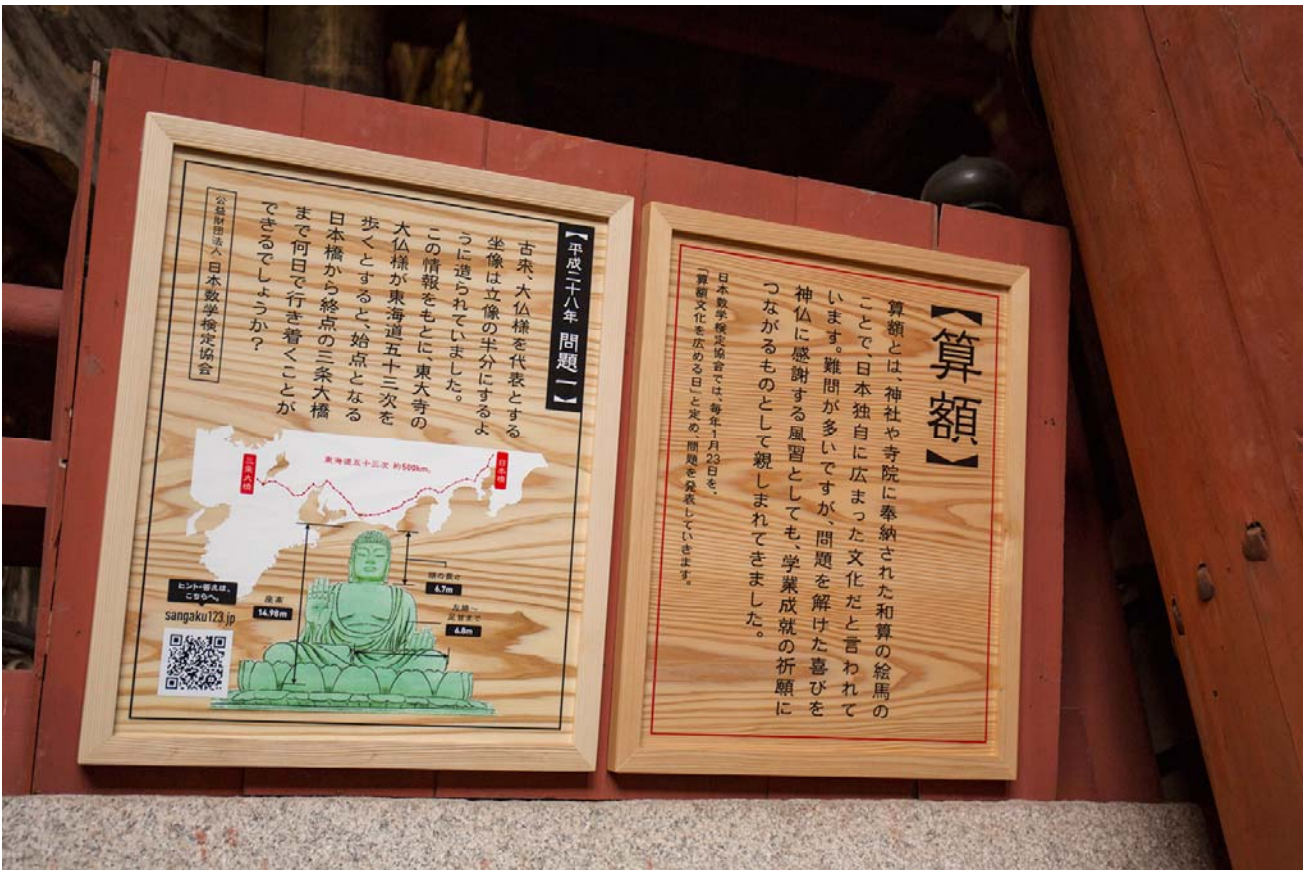 【算額】
算額とは、神社や寺院に奉納された和算の絵馬の
ことで、日本独自に広まった文化だと言われて
います。難問が多いですが、問題を解けた喜びを
神仏に感謝する風習としても、学業成就の祈願に
つながるものとして親しまれてきました。
日本数学検定協会では、毎年1月23日を、
「算額文化を広める日」と定め、問題を発表していきます。
【平成二十八年 問題一】
古来、大仏様を代表とする
坐像は立像の半分にするよ
うに造られていました。
この情報をもとに、東大寺の
大仏様が東海道五十三次を
歩くとすると、始点となる
日本橋から終点の三条大橋
まで何日で行き着くことが
できるでしょうか？
公益財団法人 日本数学検定協会
日本橋
東海道五十三次 約500km。
三条大橋
頭の長さ
6.7m
左膝〜
足首まで
6.8m
座高
14.98m
ヒント・答えは、
こちらへ。
sangaku123.jp